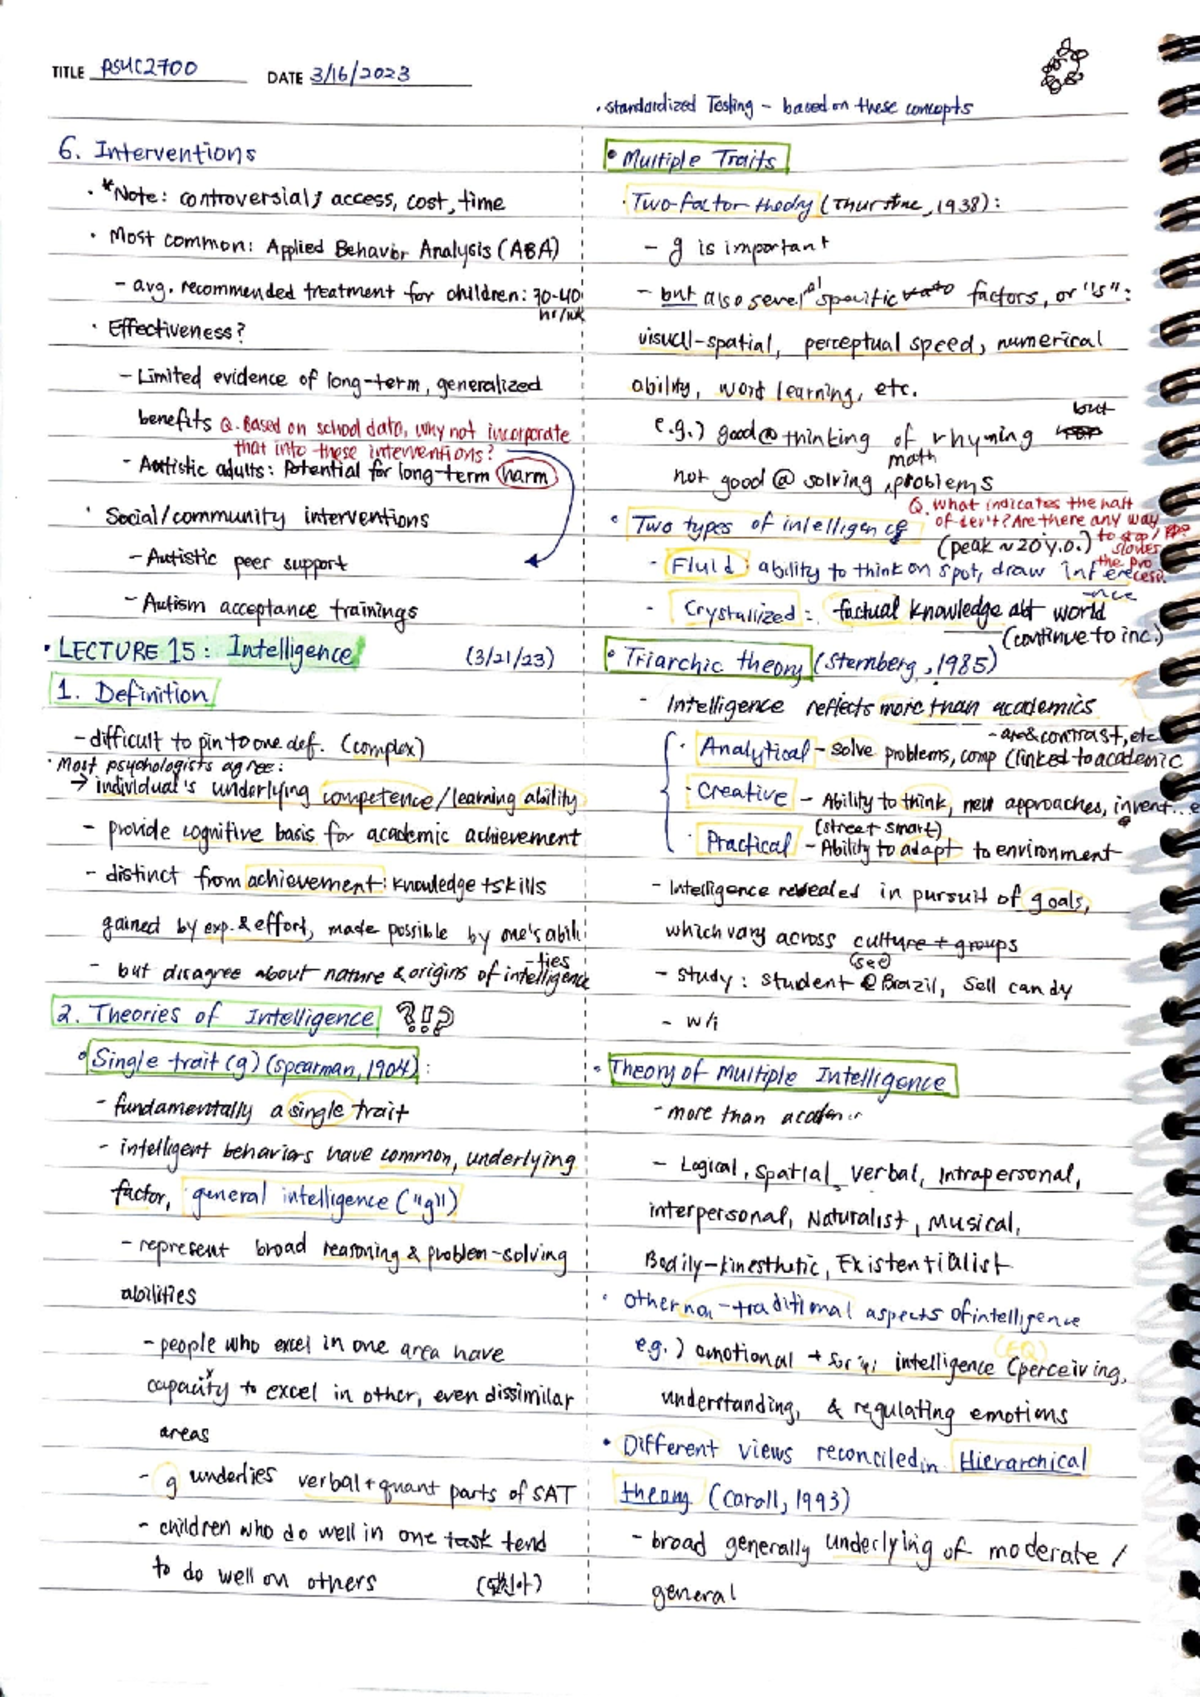 TITLE PSYC2700 DATE 3/16/2023
6. Interventions
· *Note: controversial; access, cost, time
· Most common: Applied Behavior Analysis (ABA)
- avg. recommended treatment for children: 30-40
hr/wk
· Effectiveness?
- Limited evidence of long-term, generalized
benefits Q. Based on school data, why not incorporate
that into these interventions?
- Autistic adults: Potential for long-term harm
· Social/community interventions
- Autistic peer support
- Autism acceptance trainings
· LECTURE 15: Intelligence (3/21/23)
1. Definition
- difficult to pin to one def. (complex)
· Most psychologists agree:
→ individual's underlying competence/learning ability
- provide cognitive basis for academic achievement
- distinct from achievement: knowledge + skills
gained by exp. & effort, made possible by one's abili
-ties
- but disagree about nature & origins of intelligence
2. Theories of Intelligence ?!?
· Single trait (g) (Spearman, 1904):
- fundamentally a single trait
- intelligent behaviors have common, underlying
factor, general intelligence ("g")
- represent broad reasoning & problem-solving
abilities
- people who excel in one area have
capacity to excel in other, even dissimilar
areas
- g underlies verbal + quant parts of SAT
- children who do well in one task tend
to do well on others
· Standardized Testing - based on these concepts
· Multiple Traits
· Two-factor theory (Thurstone, 1938):
- g is important
- but also several specific factors, or "s":
visual-spatial, perceptual speed, numerical
ability, word learning, etc.
e.g.) good @ thinking of rhyming but
not good @ solving math problems
Q. What indicates the half
of Are there any way
to stop/
slower
the pro
cess?
· Two types of intelligence
(peak ~20 y.o.)
- Fluid: ability to think on spot, draw infere
-nce
- Crystallized: factual knowledge abt world
(continue to inc.)
· Triarchic theory (Sternberg, 1985)
- Intelligence reflects more than academics
- are & contrast, etc
· Analytical - solve problems, comp (linked to academic
· Creative - Ability to think, new approaches, invent...e
(street smart)
· Practical - Ability to adapt to environment
- Intelligence revealed in pursuit of goals,
which vary across culture + groups
(SES)
- study: student @ Brazil, sell candy
- w/i
· Theory of Multiple Intelligence
- more than
- Logical, Spatial, Verbal, Intrapersonal,
interpersonal, Naturalist, Musical,
Bodily-kinesthetic, Existentialist
· Other non-traditional aspects of intelligence
(EQ)
e.g.) emotional + intelligence (perceiving,
understanding, & regulating emotions
· Different views reconciled in Hierarchical
theory (Caroll, 1993)
- broad generally underlying of moderate /
general